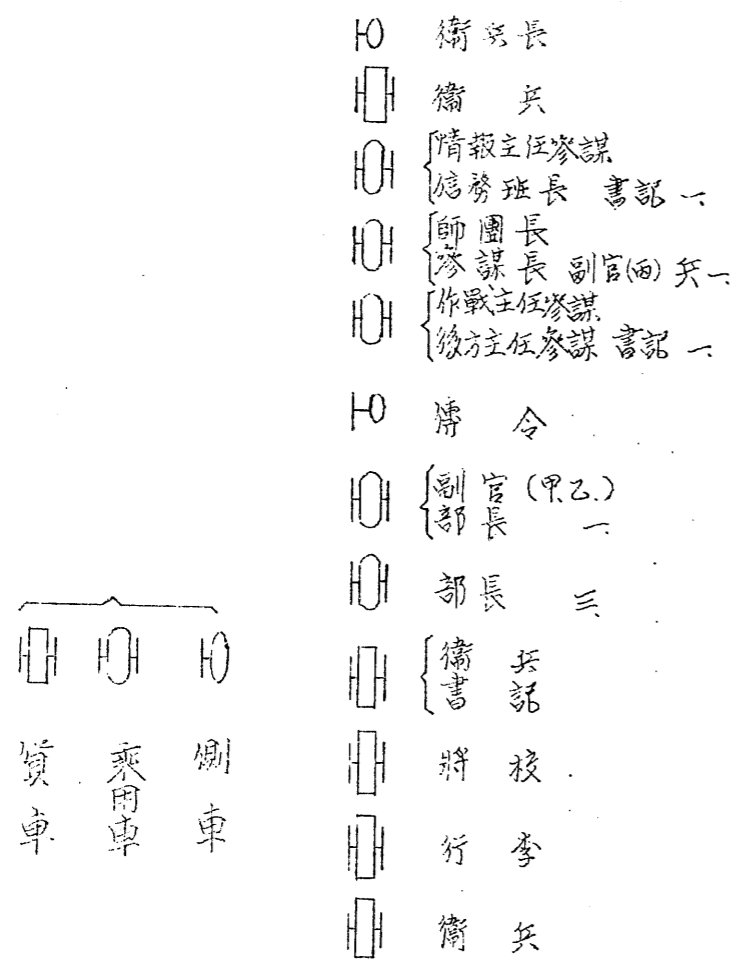 衛兵長
衛兵
情報主任參謀
信務班長 書記 一、
師團長
參謀長 副官(丙) 兵一、
作戰主任參謀
後方主任參謀 書記 一、
傳令
副官(甲、乙、)
部長 一、
部長 三、
衛兵
書記
將校
行李
衛兵
側車
乘用車
貨車